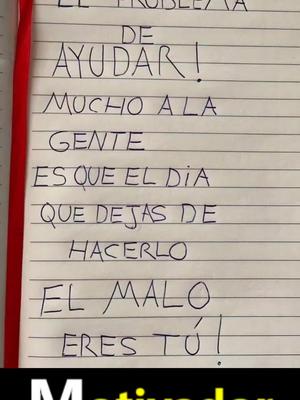 EL PROBLEMA
DE
AYUDAR!
MUCHO A LA
GENTE
ES QUE EL DiA
QUE DEJAS DE
HACERLO
EL MALO
ERES TÚ!
Motivador